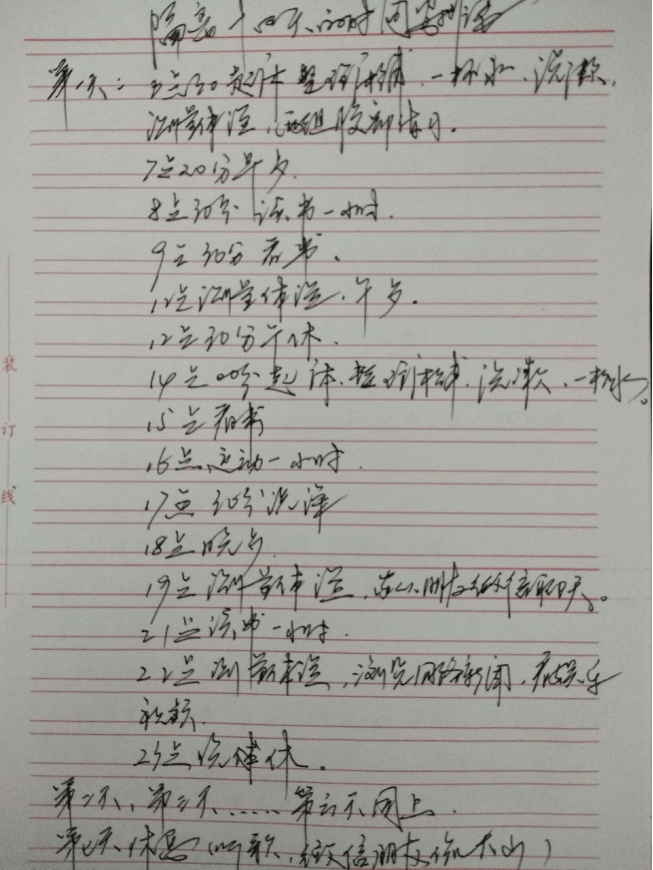 隔离十四天的时间安排
第一天：5点30起床 整理床铺，一杯水，洗漱，
测量体温，两组腹部练习。
7点20分早夕
8点30分 读书一小时．
9点30分看书。
12点测量体温，午夕。
12点30分午休．
14点00分起床．整理床铺，洗漱，一杯水。
15点看书
16点运动一小时．
17点30分洗澡
18点晚夕
19点测量体温，朋友微信聊天。
21点读书一小时．
22点测量体温，浏览网络新闻，看娱乐
视频．
23点洗漱休。
第二天，第三天……第六天同上．
第七天休息（听歌，微信朋友）
装 订 线